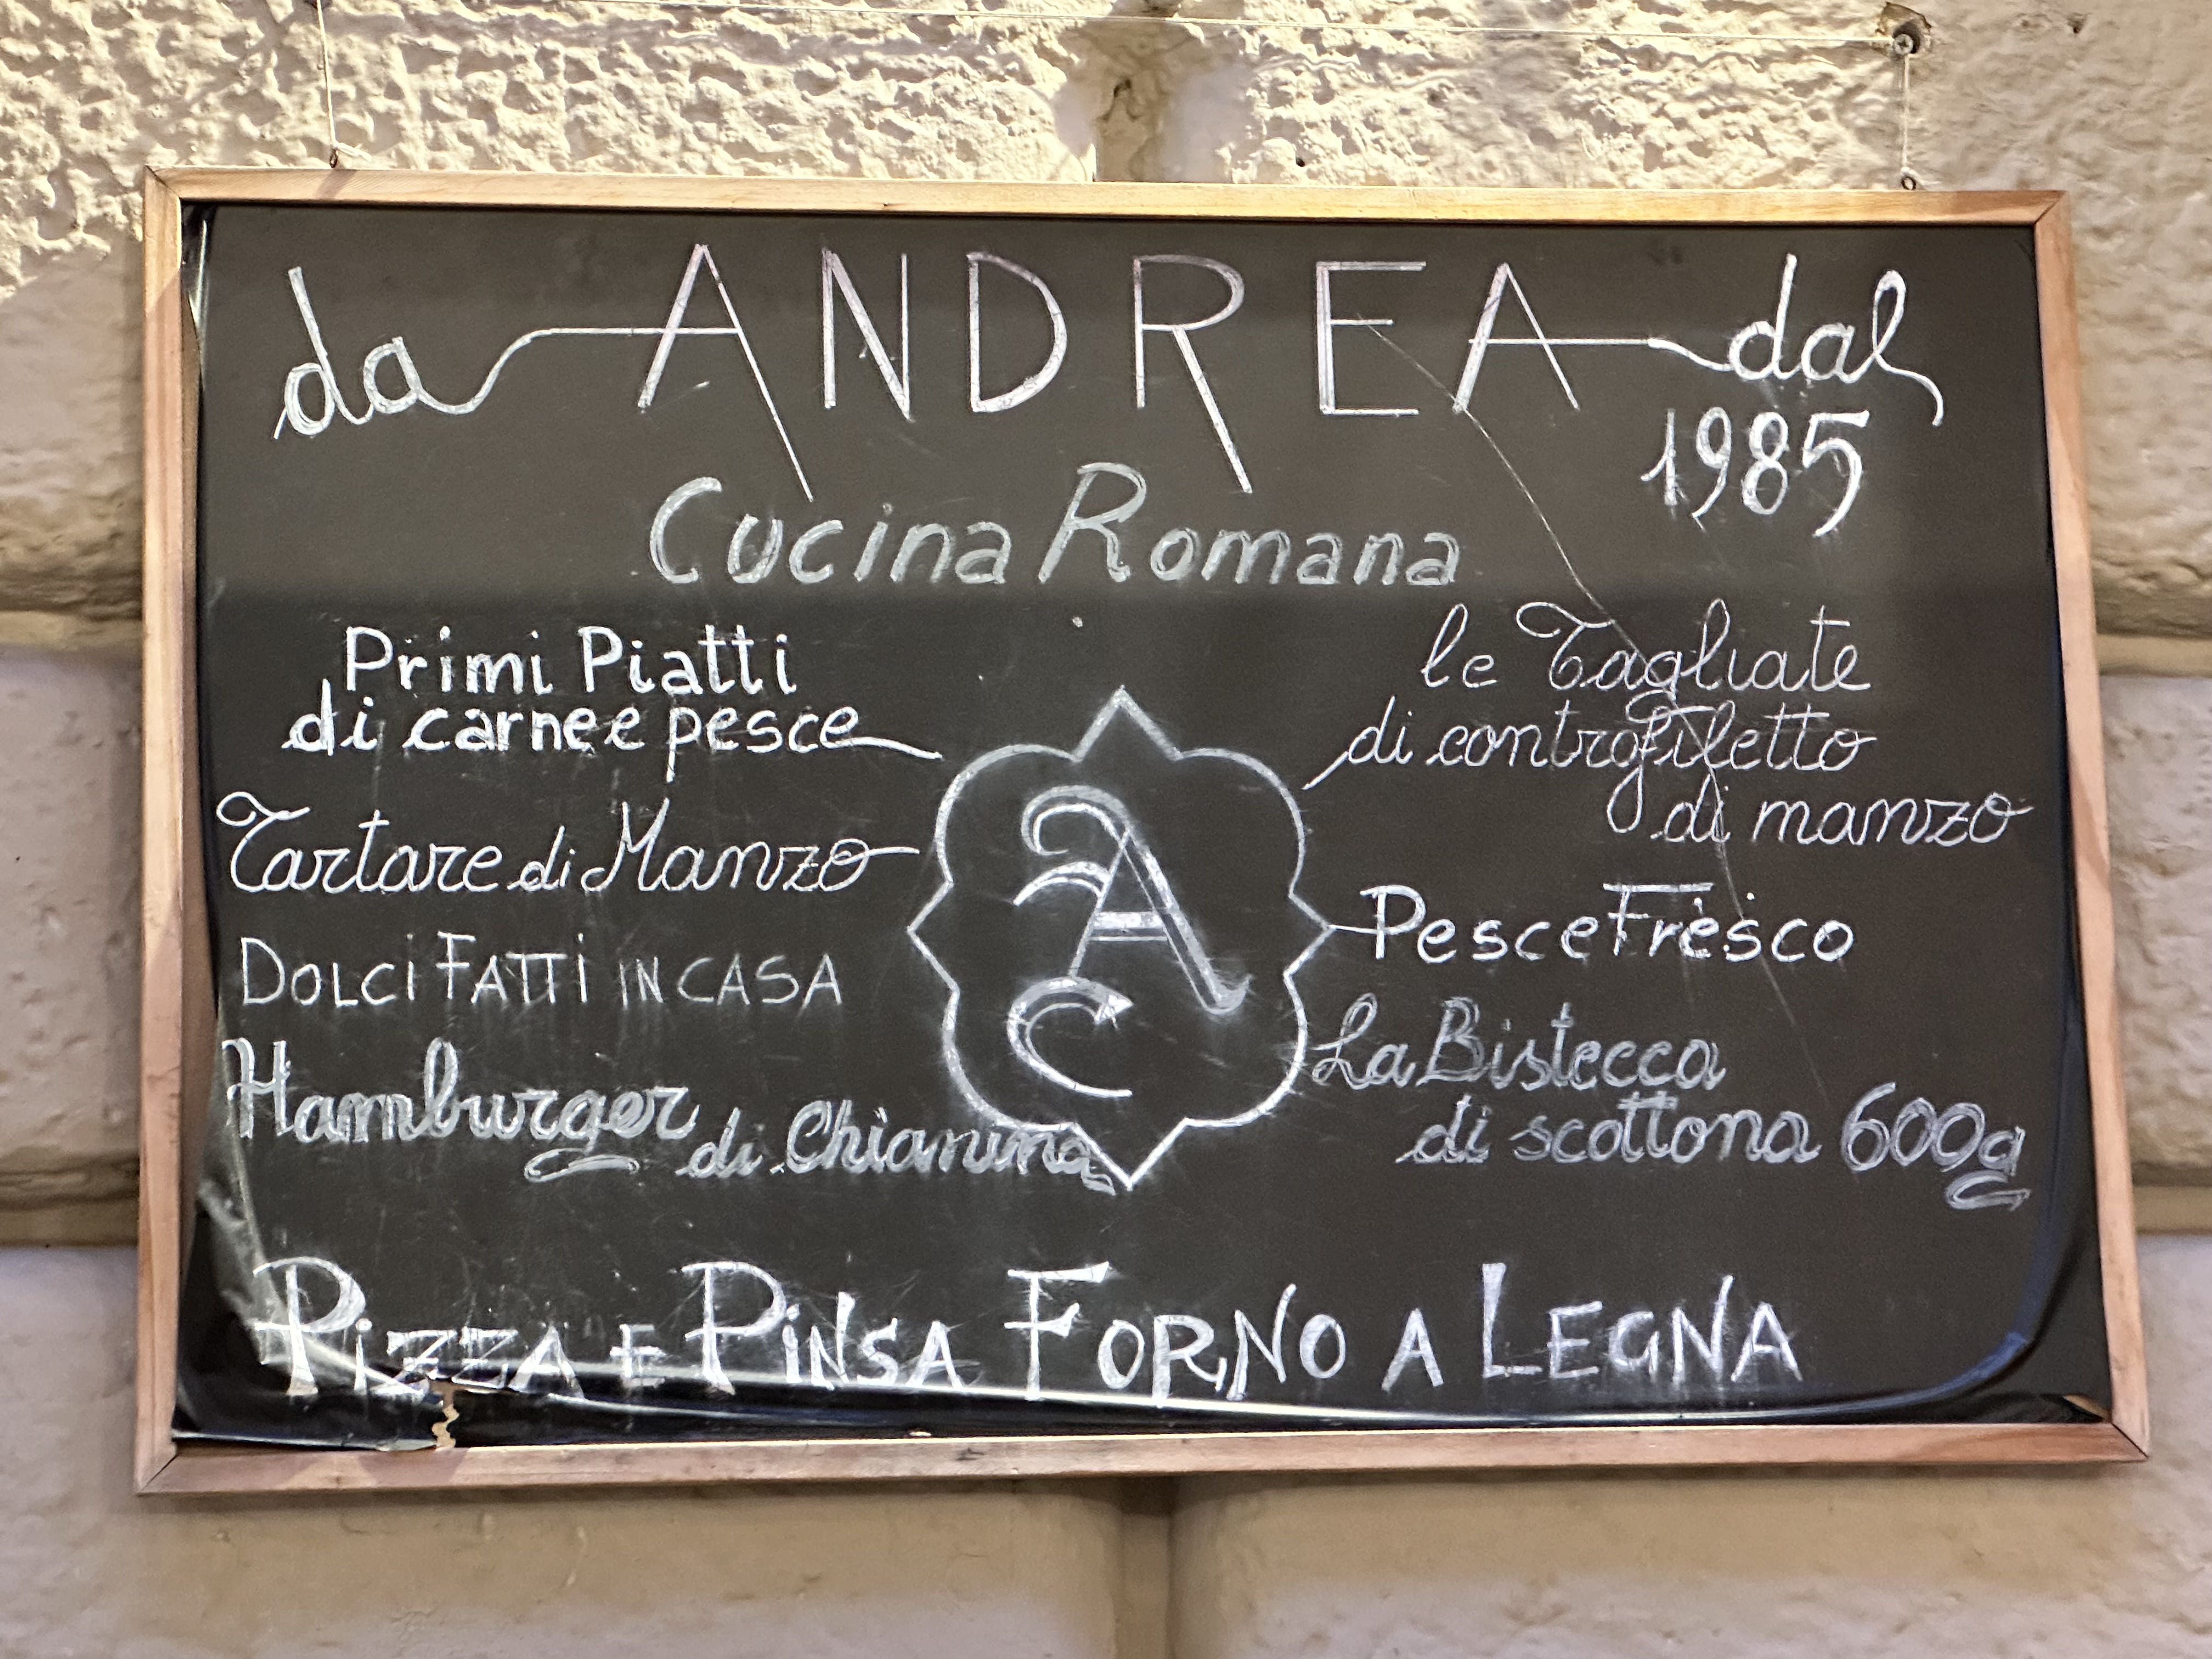 da ANDREA dal
1985
Cucina Romana
Primi Piatti
di carne e pesce
Tartare di Manzo
DOLCI FATTI IN CASA
Hamburger di Chianina
A
C
le Tagliate
di controfiletto
di manzo
Pesce Fresco
La Bistecca
di scottona 600g
PIZZA E PINSA FORNO A LEGNA